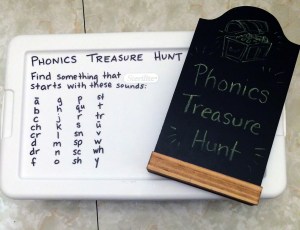 PHONICS TREASURE HUNT
Find something that
starts with these sounds:
a g p st
b h qu t
c j r tr
ch k s ū
cr l sn v
d m sp w
dr n sc wh
f o sh y
Phonics
Treasure
Hunt